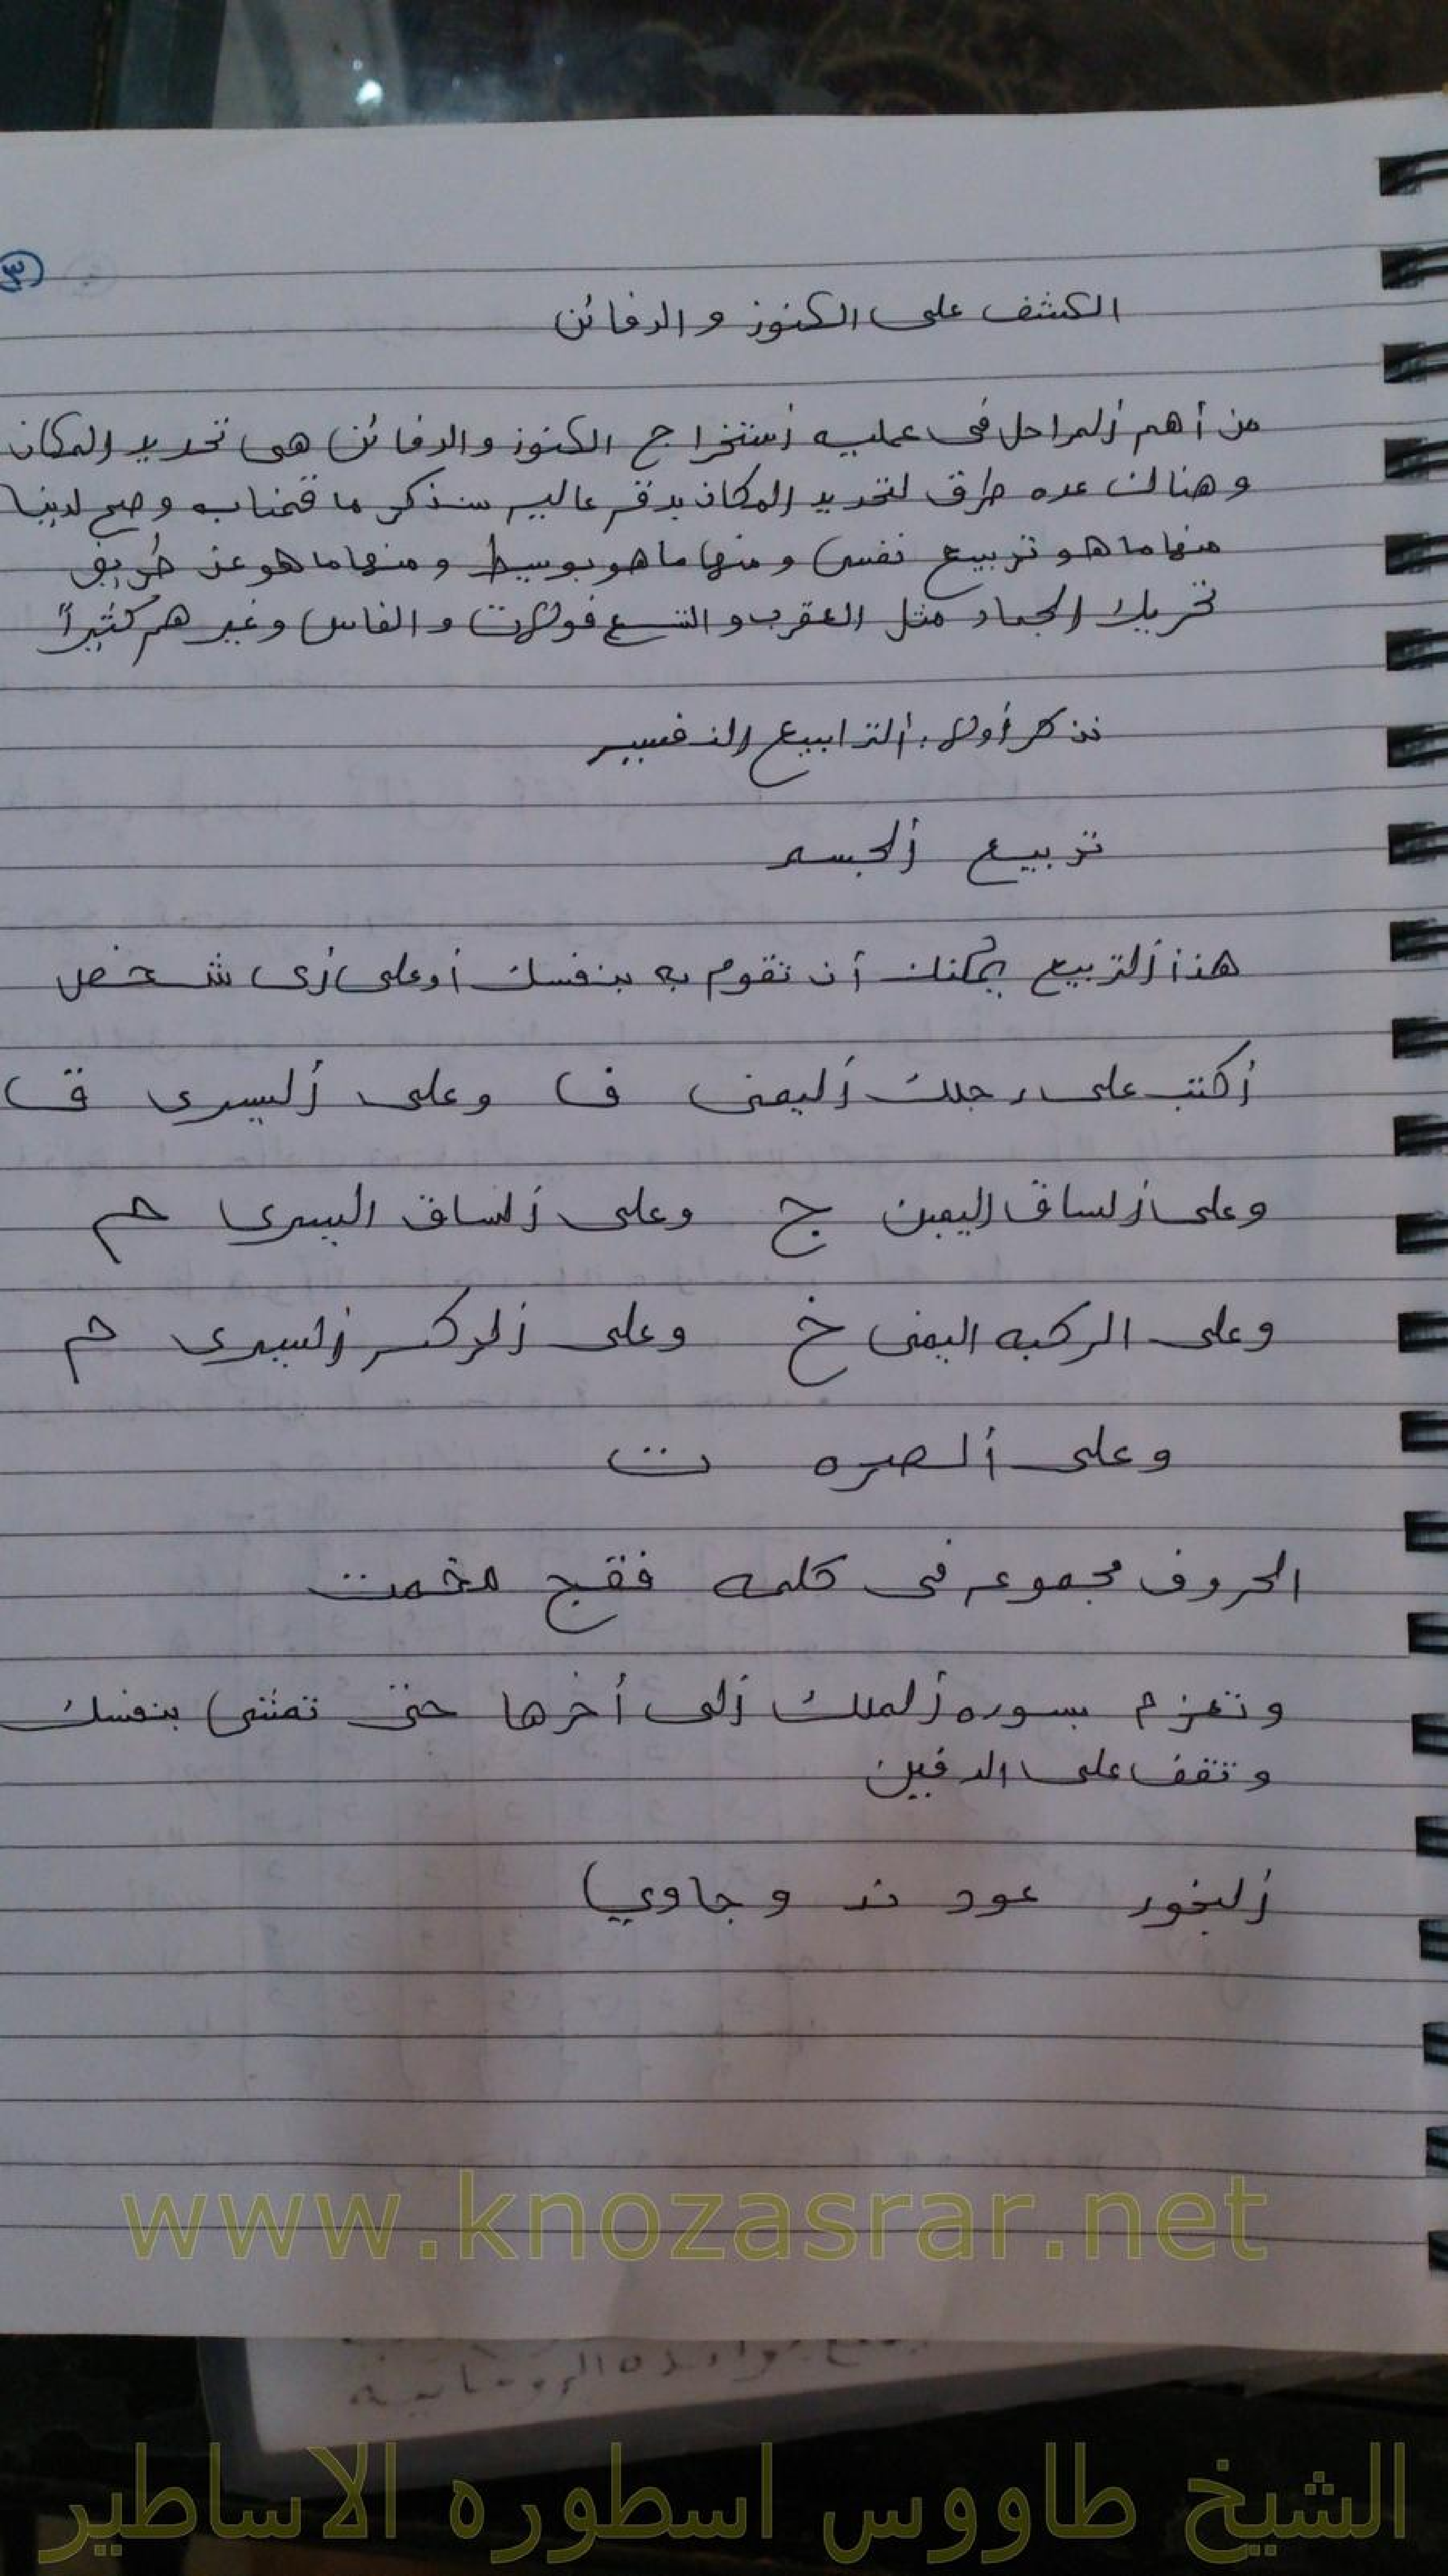 ٣
الكشف على الكنوز و الدفائن
من أهم إلمراحل فى عمليه إستخراج الكنوز والدفائن هى تحديد المكان
وهنالك عده طرق لتحديد المكان بدقه عاليه سنذكر ما قمنا به وصح لدينا
منها ما هو تربيع نفسى ومنها ما هو بوسيط ومنها ما هو عن طريق
تحريك الجماد مثل العقرب و التسع فولات و الفاس وغيرهم كثيراً
نذكر أولا : ألترابيع النفسيه
تربيع ألجسم
هذا إلتربيع يمكنك أن تقوم به بنفسك أو على إى شخص
أكتب على رجلك إليمنى ف وعلى أليسرى ق
وعلى إلساق اليمين ج وعلى إلساق اليسرى م
وعلى الركبه اليمنى خ وعلى إلركبه إليسرى م
وعلى ألصره ت
الحروف مجموعه فى كلمه فقج مخمت
وتعزم بسوره إلملك إلى أخرها حتى تمشى بنفسك
وتقف على الدفين
إلبخور عود ند و جاوي
www.knozasrar.net
الشيخ طاووس اسطوره الاساطير